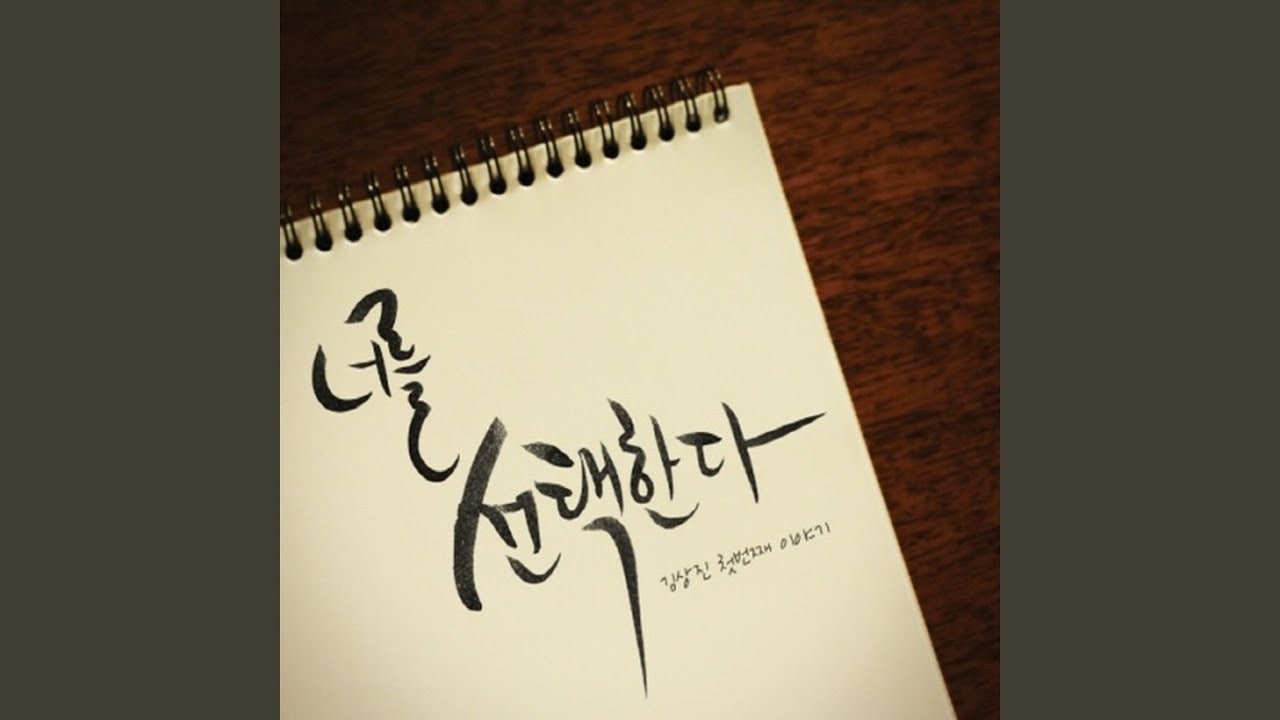 너를
선택한다
김상진 첫번째 이야기